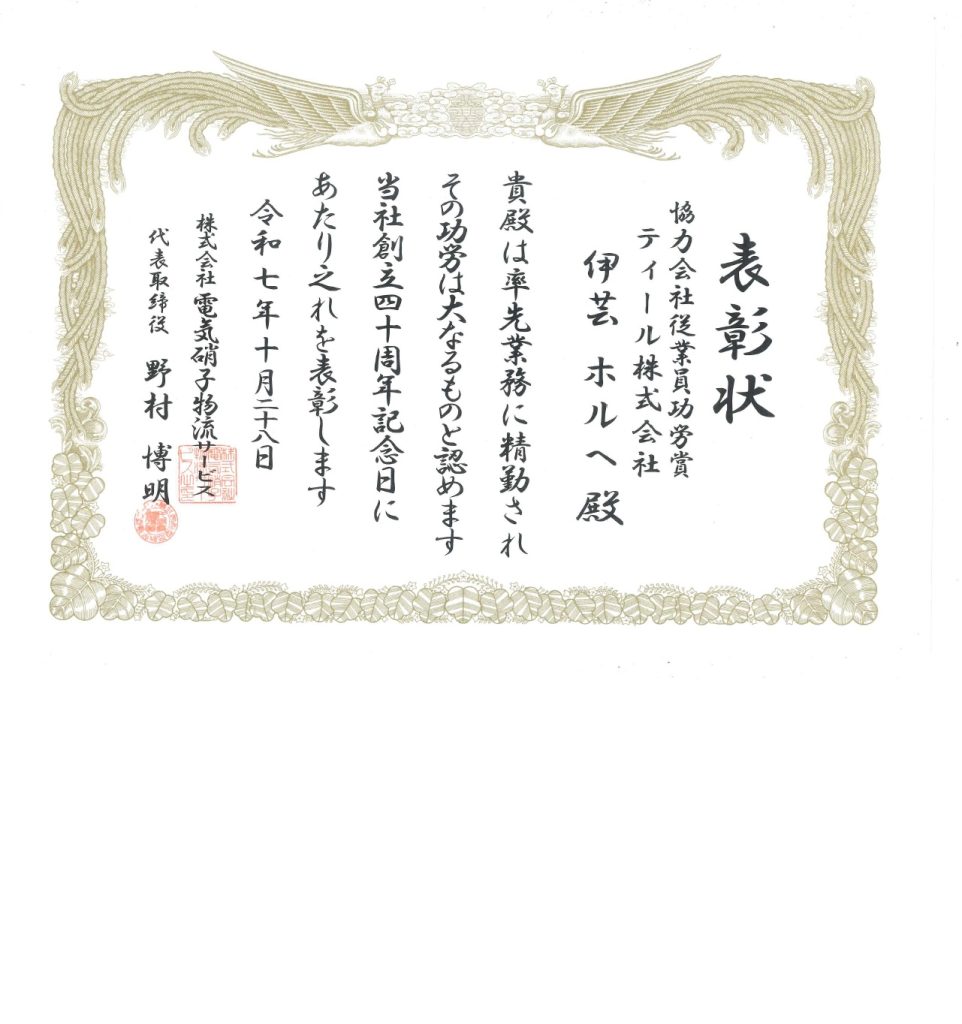 表彰状
協力会社従業員功労賞
ティール株式会社
伊芸 ホルヘ 殿
貴殿は率先業務に精勤され
その功労は大なるものと認めます
当社創立四十周年記念日に
あたり之れを表彰します
令和七年十月二十八日
株式会社 電気硝子物流サービス
代表取締役 野村 博明